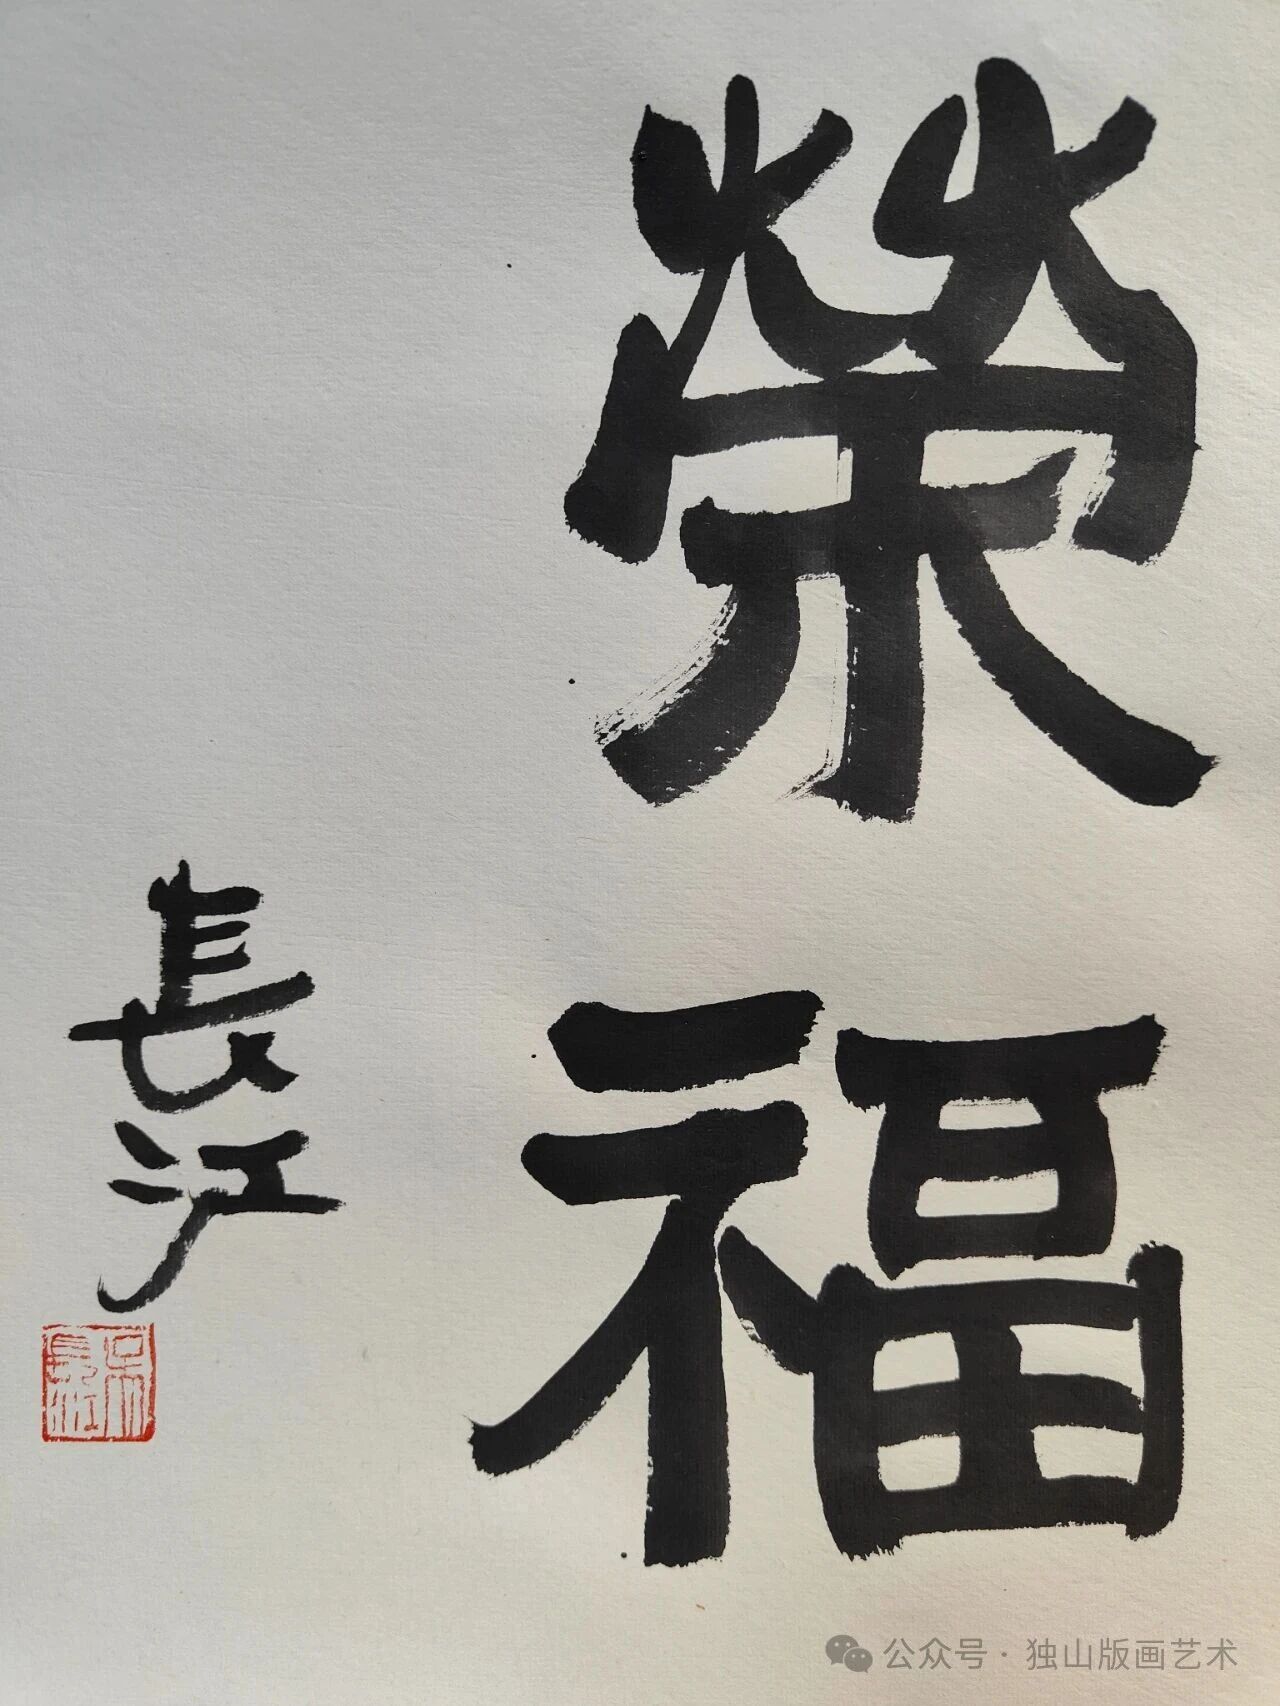 榮福
長江
吴長江
公众号 · 独山版画艺术